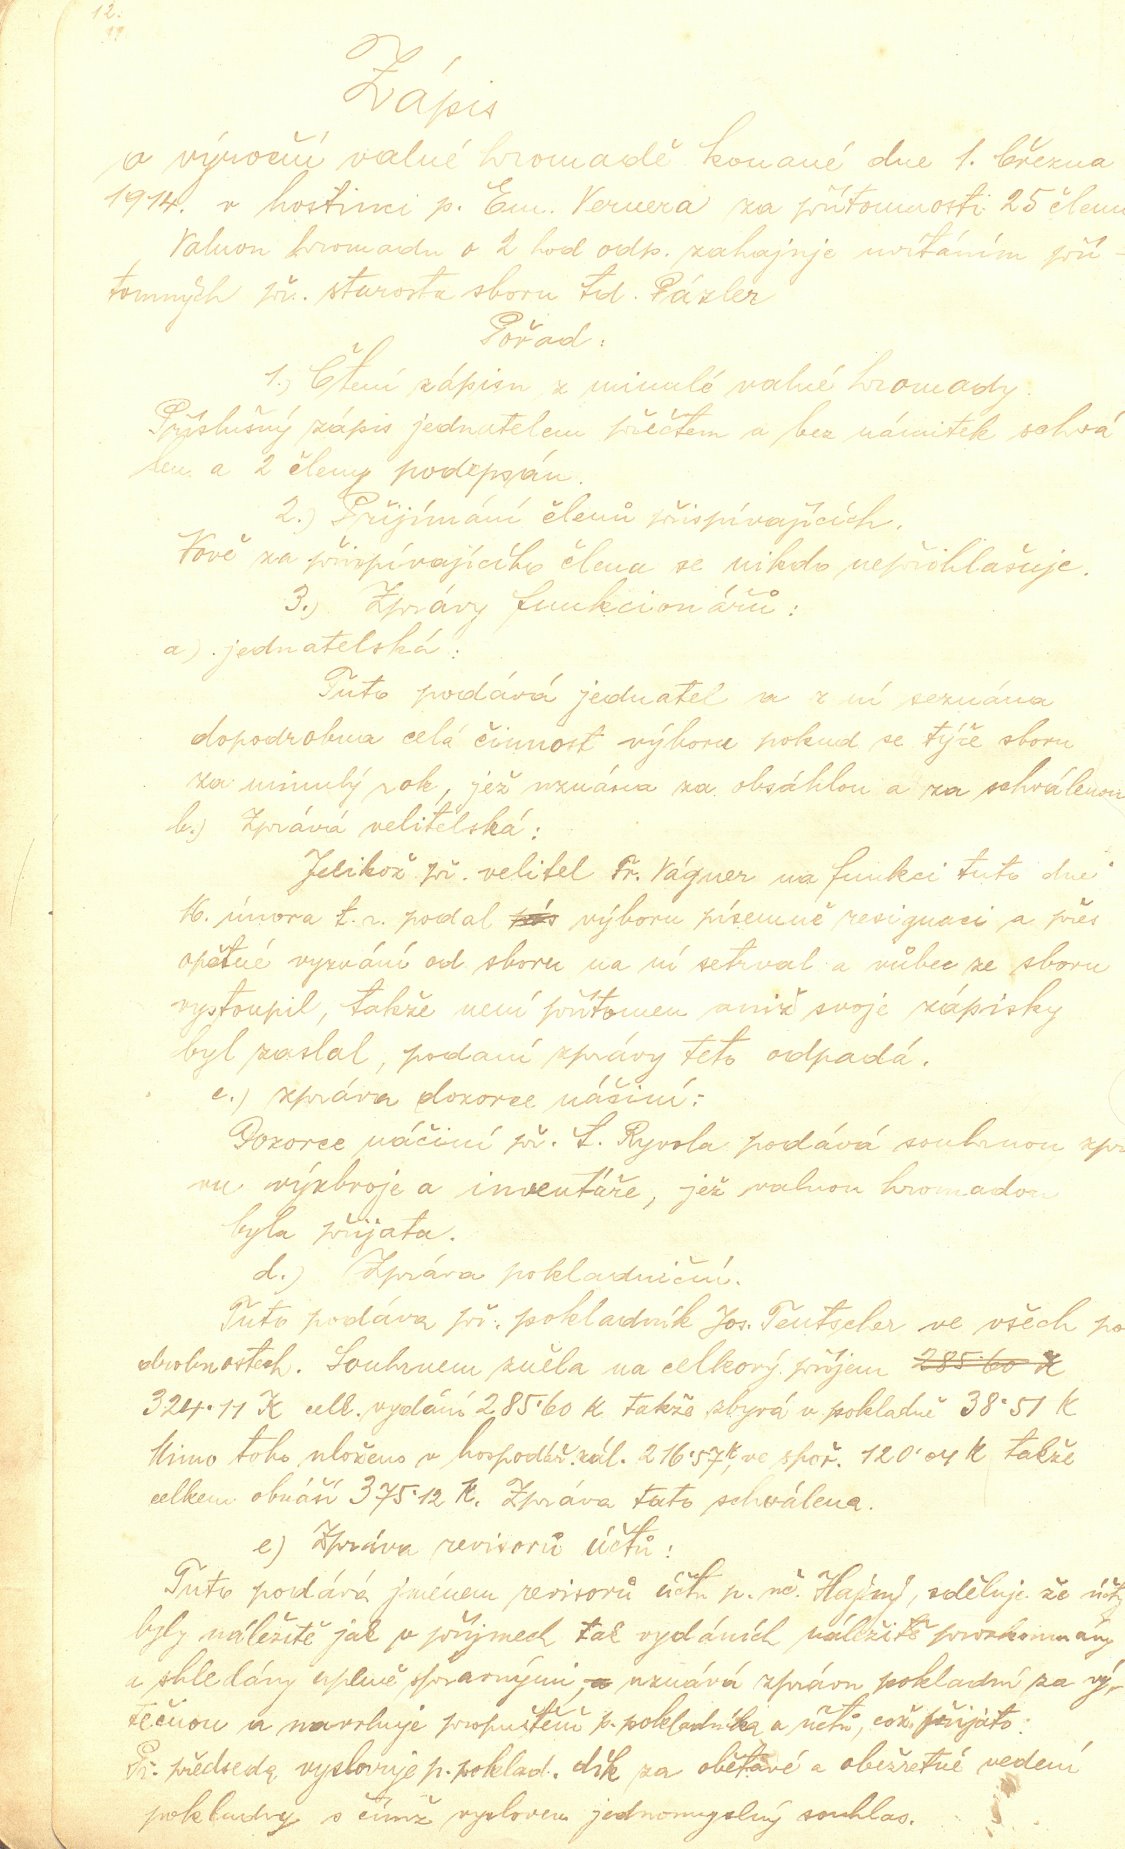 12.
Zápis
o výroční valné hromadě konané dne 1. března
1914. v hostinci p. Em. Vernera za přítomnosti 25 členů
Valnou hromadu o 2 hod odp. zahajuje uvítáním pří-
tomných př. starosta sboru Ed. Pázler
Pořad:
1.) Čtení zápisu z minulé valné hromady.
Příslušný zápis jednatelem přečtem a bez námitek schvá
len a 2 členy podepsán.
2.) Přijímání členů přispívajících.
Nově za přispívajícího člena se nikdo nepřihlašuje.
3.) Zprávy funkcionářů:
a). jednatelská:
Tuto podává jednatel a z ní seznána
dopodrobna celá činnost výboru pokud se týče sboru
za minulý rok, jež uznána za obsáhlou a za schválenou
b.) Zprává velitelská:
Jelikož př. velitel Fr. Vágner na funkci tuto dne
16. února t. r. podal výboru písemně resignaci a přes
opětné vyzvání od sboru na ní setrval a vůbec ze sboru
vystoupil, takže není přítomen aniž svoje zápisky
byl zaslal, podaní zprávy této odpadá.
c.) zpráva dozorce náčiní:
Dozorce náčiní př. L. Ryvola podává souhrnou zprá
vu výzbroje a inventáře, jež valnou hromadou
byla přijata.
d.) Zpráva pokladniční.
Tuto podáva př. pokladník Jos. Teutscher ve všech po
drobnostech. Souhrnem zněla na celkový příjem 285·60 K
324·11 K celk. vydání 285·60 K takže zbyvá v pokladně 38·51 K
Mimo toho uloženo v hospodář. zál. 216·57 K, ve spoř. 120·04 K takže
celkem obnáší 375·12 K. Zpráva tato schválena.
e) Zpráva revisorů účtů:
Tuto podává jménem revisorů účtů p. Hajný, sděluje že účty
byly náležitě jak v příjmech tak vydáních náležitě prozkoumány
a shledány uplně správnými, a uznává zprávu pokladní za vý-
tečnou a navrhuje propuštění p. pokladníka a účtů, což přijato.
Př. předseda vyslovuje p. poklad. dík za obětavé a obezřetné vedení
pokladny s čímž vysloven jednomyslný souhlas.